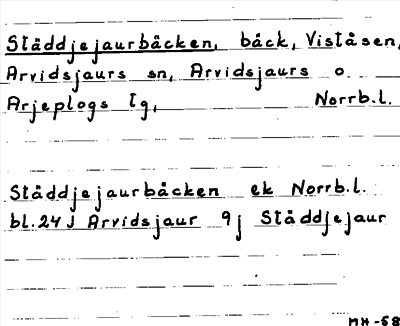 Ståddjejaurbäcken, bäck, Viståsen,
Arvidsjaurs sn, Arvidsjaurs o
Arjeplogs lg, Norrb.l.
Ståddjejaurbäcken ek Norrb.l.
bl.24J Arvidsjaur 9j Ståddjejaur
MH-68